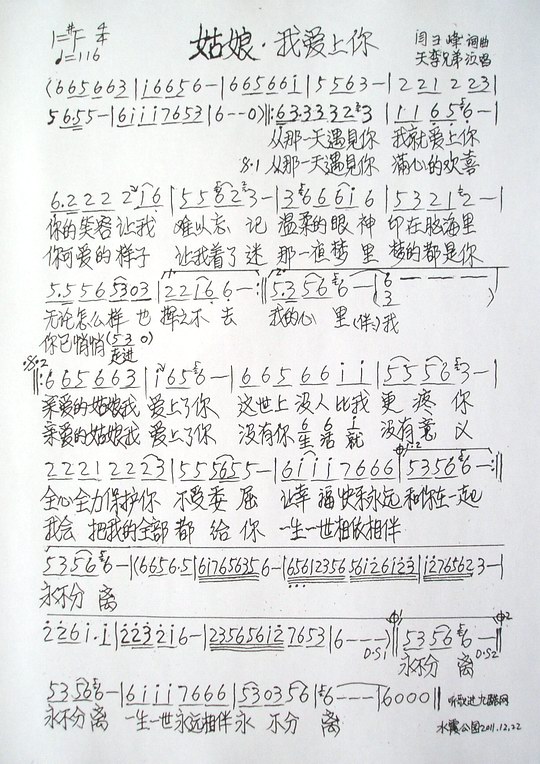 1=#F 4/4
♩=116
姑娘·我爱上你
闫子峰 词曲
天奕兄弟 演唱
(665663|i6656-|66566i|5563-|221223|
5655-|6iii7653|6--0)‖:63.33323|11656-|
从那一天遇見你 我就爱上你
𝄋.1 从那一天遇見你 满心的欢喜
6.2222i6|55623-|3666i6|53212-|
你的笑容让我 难以忘记 温柔的眼神 印在脑海里
你可爱的样子 让我着了迷 那一夜梦里 梦的都是你
5.5565303|22166-:‖5.3566-|6
3
无论怎么样也 挥之不去 我的心里(伴:)我
你已悄悄(53 0)
走进
𝄋.2
‖:665663|i656-|66566ii|55563-|
亲爱的姑娘我 爱上了你 这世上没人比我更疼你
亲爱的姑娘我 爱上了你 没有你生活就 没有意义
2221223|555655-|6iii7666|53566-:‖
全心全力保护你 不受委屈 让幸福快乐永远和你在一起
我会把我的全部都给你 一生一世相依相伴
53566-|(6656·5|617656356|6561235656126123|i2765623-|
永不分离
226i.i|22321216-|23565612 7653|6---)‖53566-‖
D.S1
D.S2
永不分离
53566-|6iii7666|530356|6---|6000‖
永不分离 一生一世永远相伴永不分离
听歌进九酷网
水震公園2011.12.22